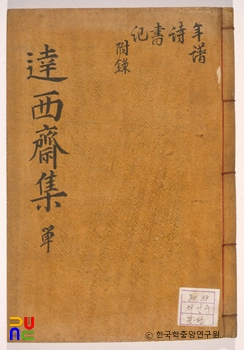 年譜
詩
書
記
附錄
達西齋集 單
© 한국학중앙연구원